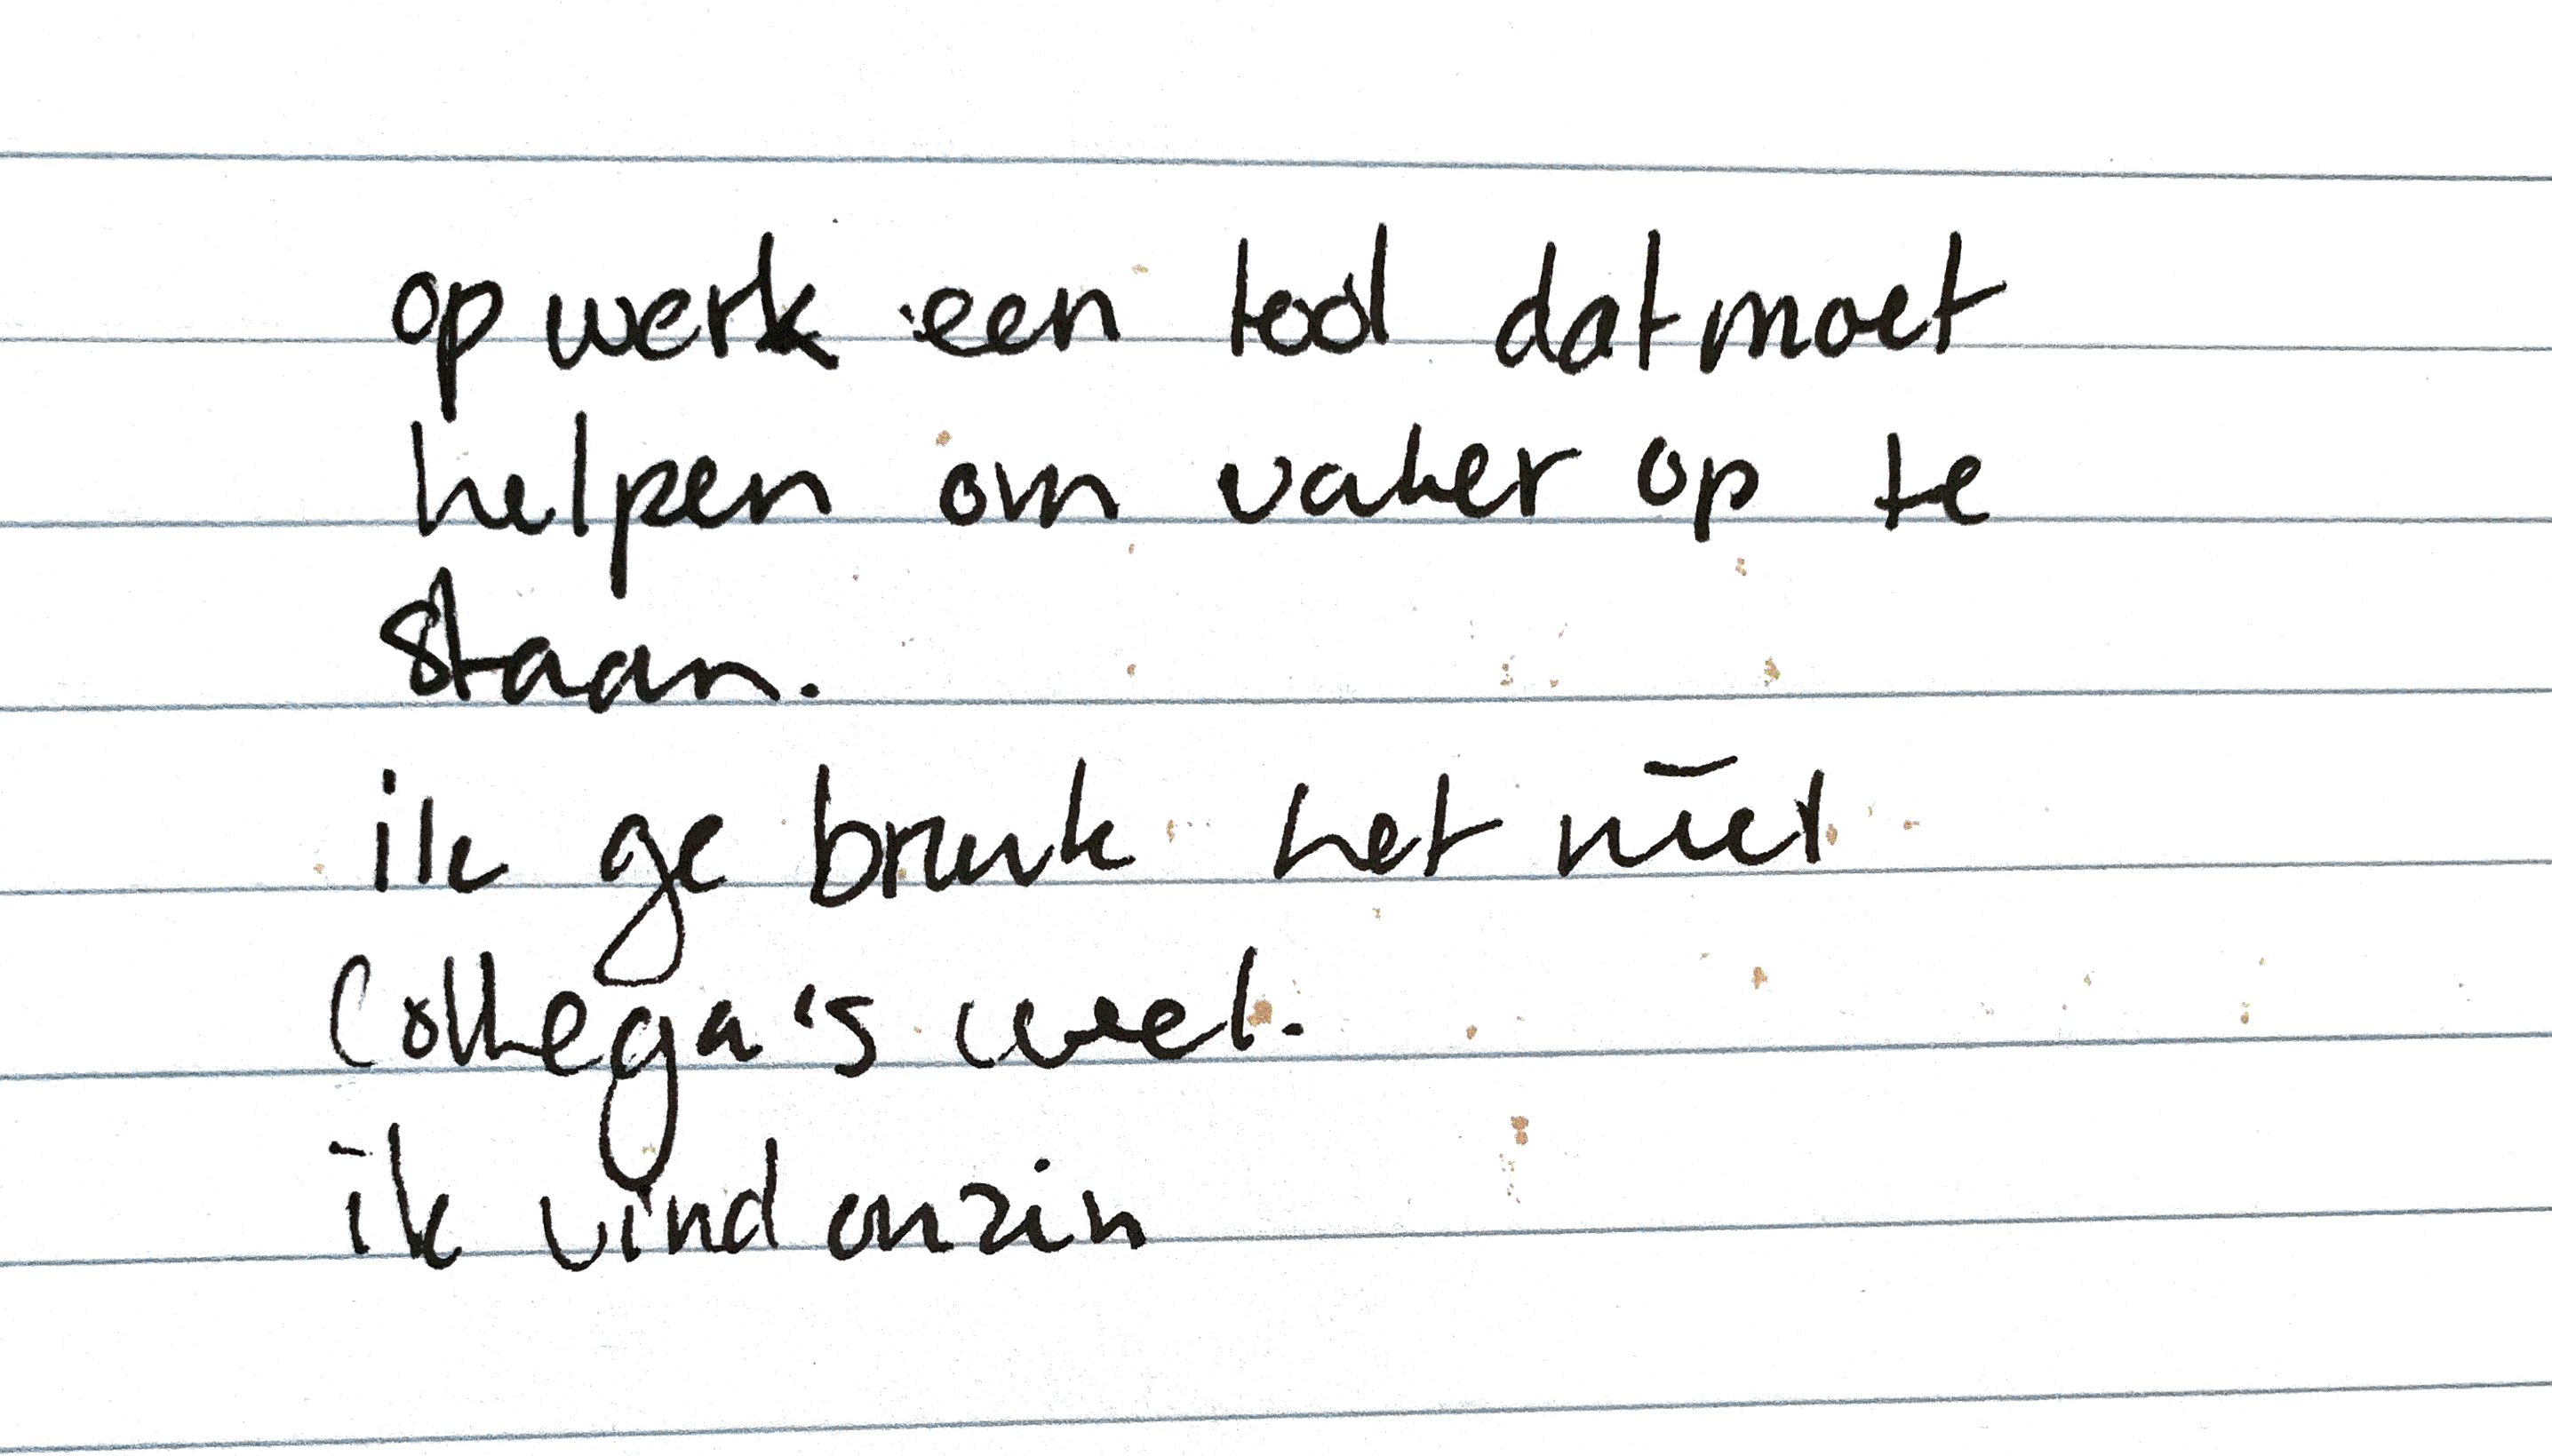 op werk een tool dat moet
helpen om vaker op te
staan.
ik ge bruik het niet
Collega's wel.
ik vind onzin